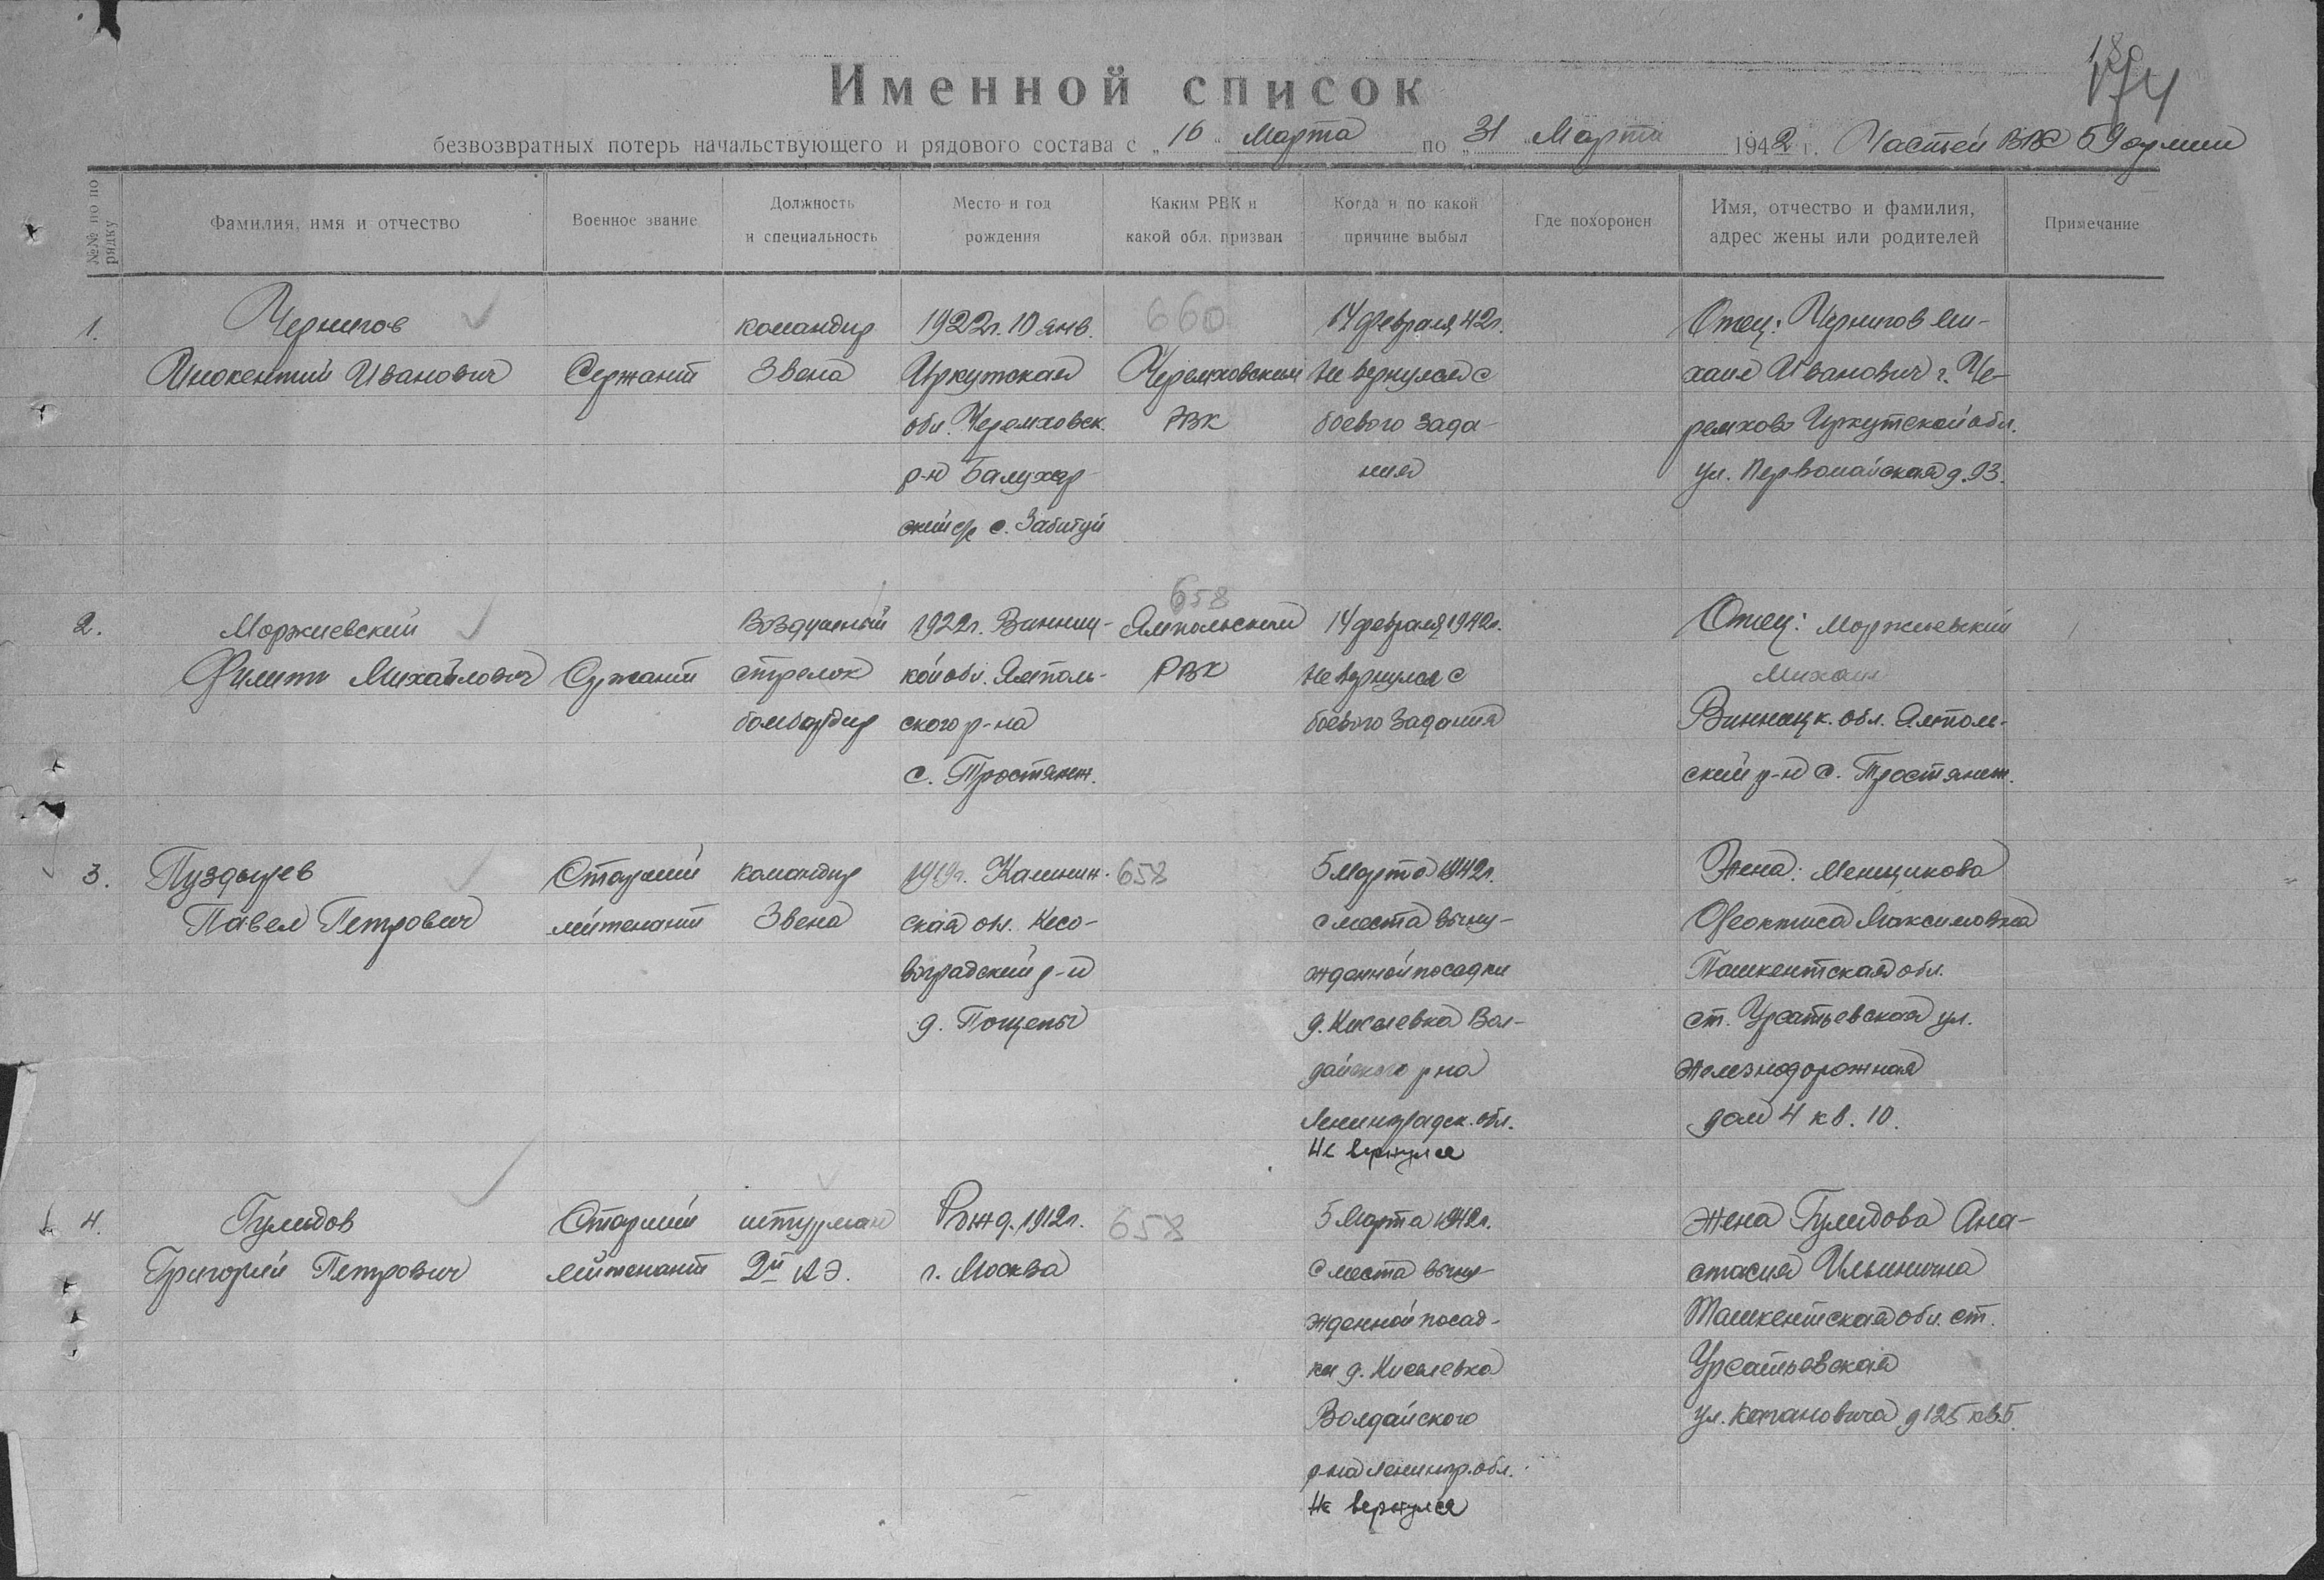 174
Именной список
безвозвратных потерь начальствующего и рядового состава с „16“ Марта по „31“ Марта 1942 г. Частей ВВС 59 армии
№№ по по рядку
Фамилия, имя и отчество
Военное звание
Должность и специальность
Место и год рождения
Каким РВК и какой обл. призван
Когда и по какой причине выбыл
Где похоронен
Имя, отчество и фамилия, адрес жены или родителей
Примечание
1.
Чернигов
Инокентий Иванович
Сержант
командир
Звена
1922г. 10 янв.
Иркутская
обл. Черемховск.
р-н
с. Забитуй
660
Черемховским
РВК
14 февраля 42г.
Не вернулся с
боевого зада-
ния
Отец: Чернигов Ми-
хаил Иванович г. Че-
ремхово Иркутской обл.
ул. Первомайская д. 93.
2.
Моржиевский
Филипп Михайлович
Сержант
Воздушный
стрелок
бомбардир
1922г. Винниц-
кой обл. Ямполь-
ского р-на
с. Тростянец.
658
Ямпольским
РВК
14 февраля 1942г.
Не вернулся с
боевого задания
Отец: Моржиевский
Михаил
Винницк. обл. Ямполь-
ский р-н с. Тростянец.
3.
Пуздырев
Павел Петрович
Старший
лейтенант
командир
Звена
1919г. Калинин.
ская обл. Кесо-
воградский р-н
д. Пощепы
658
5 Марта 1942г.
с места выну-
жденной посадки
д. Киселевка Вал-
дайского р на
Ленинградск. обл.
Не вернулся
Жена: Менщикова
Феоктиса Максимовна
Ташкентская обл.
ст. Урсатьевская ул.
Железнодорожная
дом 4 кв. 10.
4.
Гулидов
Григорий Петрович
Старший
лейтенант
штурман
2й АЭ.
Рожд. 1912г.
г. Москва
658
5 Марта 1942г.
С места выну-
жденной посад-
ки д. Киселевка
Волдайского
р-на Ленингр. обл.
Не вернулся
Жена Гулидова Ана-
стасия Ильинична
Ташкентская обл. ст.
Урсатьевская
ул. Кагановича д 125 кв 5.